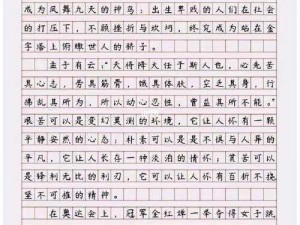 成为凤舞九天的神鸟；出生卑贱的人们在社会
的打压下，不顾挫折与坎坷，终究成为站在金
字塔上俯瞰世人的骄子。
孟子有云：“天将降大任于斯人也，必先苦
其心志，劳其筋骨，饿其体肤，空乏其身，行
拂乱其所为，所以动心忍性，曾益其所不能。”
艰苦可以是变幻莫测的环境，它让人们有一颗
平静安然的心态；朴素可以是不惧与人异的
平凡，它让人长存一种淡泊的情怀；贫苦可以
是锋利无比的利刃，它可以让人们有百折不挠
坚不可摧的精神。
在奥运会上，冠军全红婵一举夺得女子跳